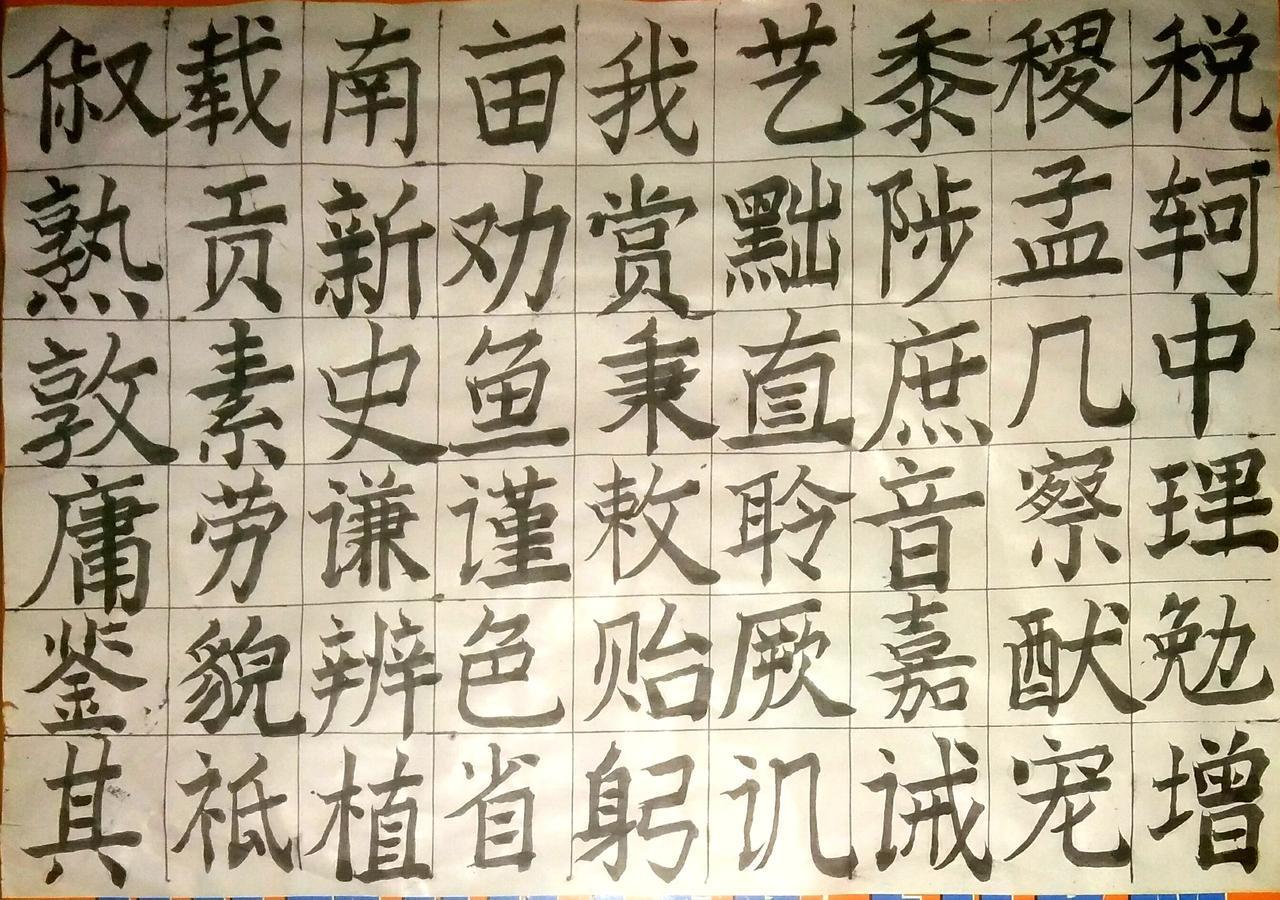 俶载南亩我艺黍稷税
熟贡新劝赏黜陟孟轲
敦素史鱼秉直庶几中
庸劳谦谨敕聆音察理
鉴貌辨色贻厥嘉猷勉
其祗植省躬讥诫宠增